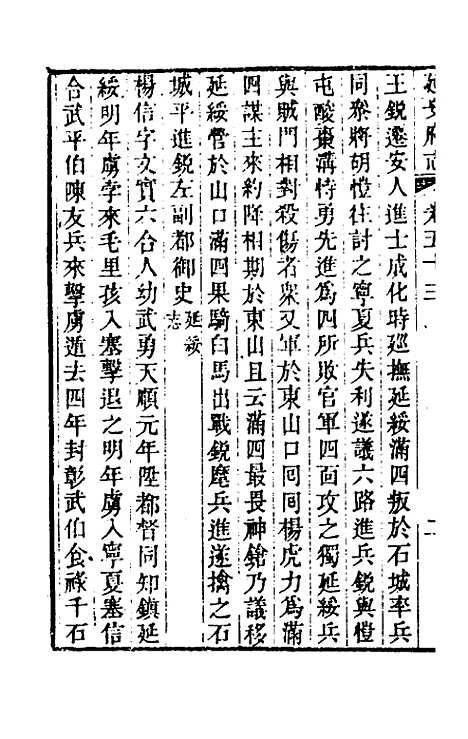 延安府志 卷五十三 二
王銳遷安人進士成化時廵撫延綏滿四叛於石城率兵
同參將胡愷往討之寧夏兵失利遂議六路進兵銳與愷
屯酸棗溝恃勇先進爲四所敗官軍四面攻之獨延綏兵
與賊門相對殺傷者衆又軍於東山口囘囘楊虎力爲滿
四謀主來約降相期於東山且云滿四最畏神鎗乃議移
延綏營於山口滿四果騎白馬出戰銳麾兵進遂擒之石
城平進銳左副都御史延綏志
楊信字文實六合人幼武勇天順元年陞都督同知鎮延
綏明年虜孛來毛里孩入塞擊退之明年虜入寧夏塞信
合武平伯陳友兵來擊虜遁去四年封彰武伯食祿千石